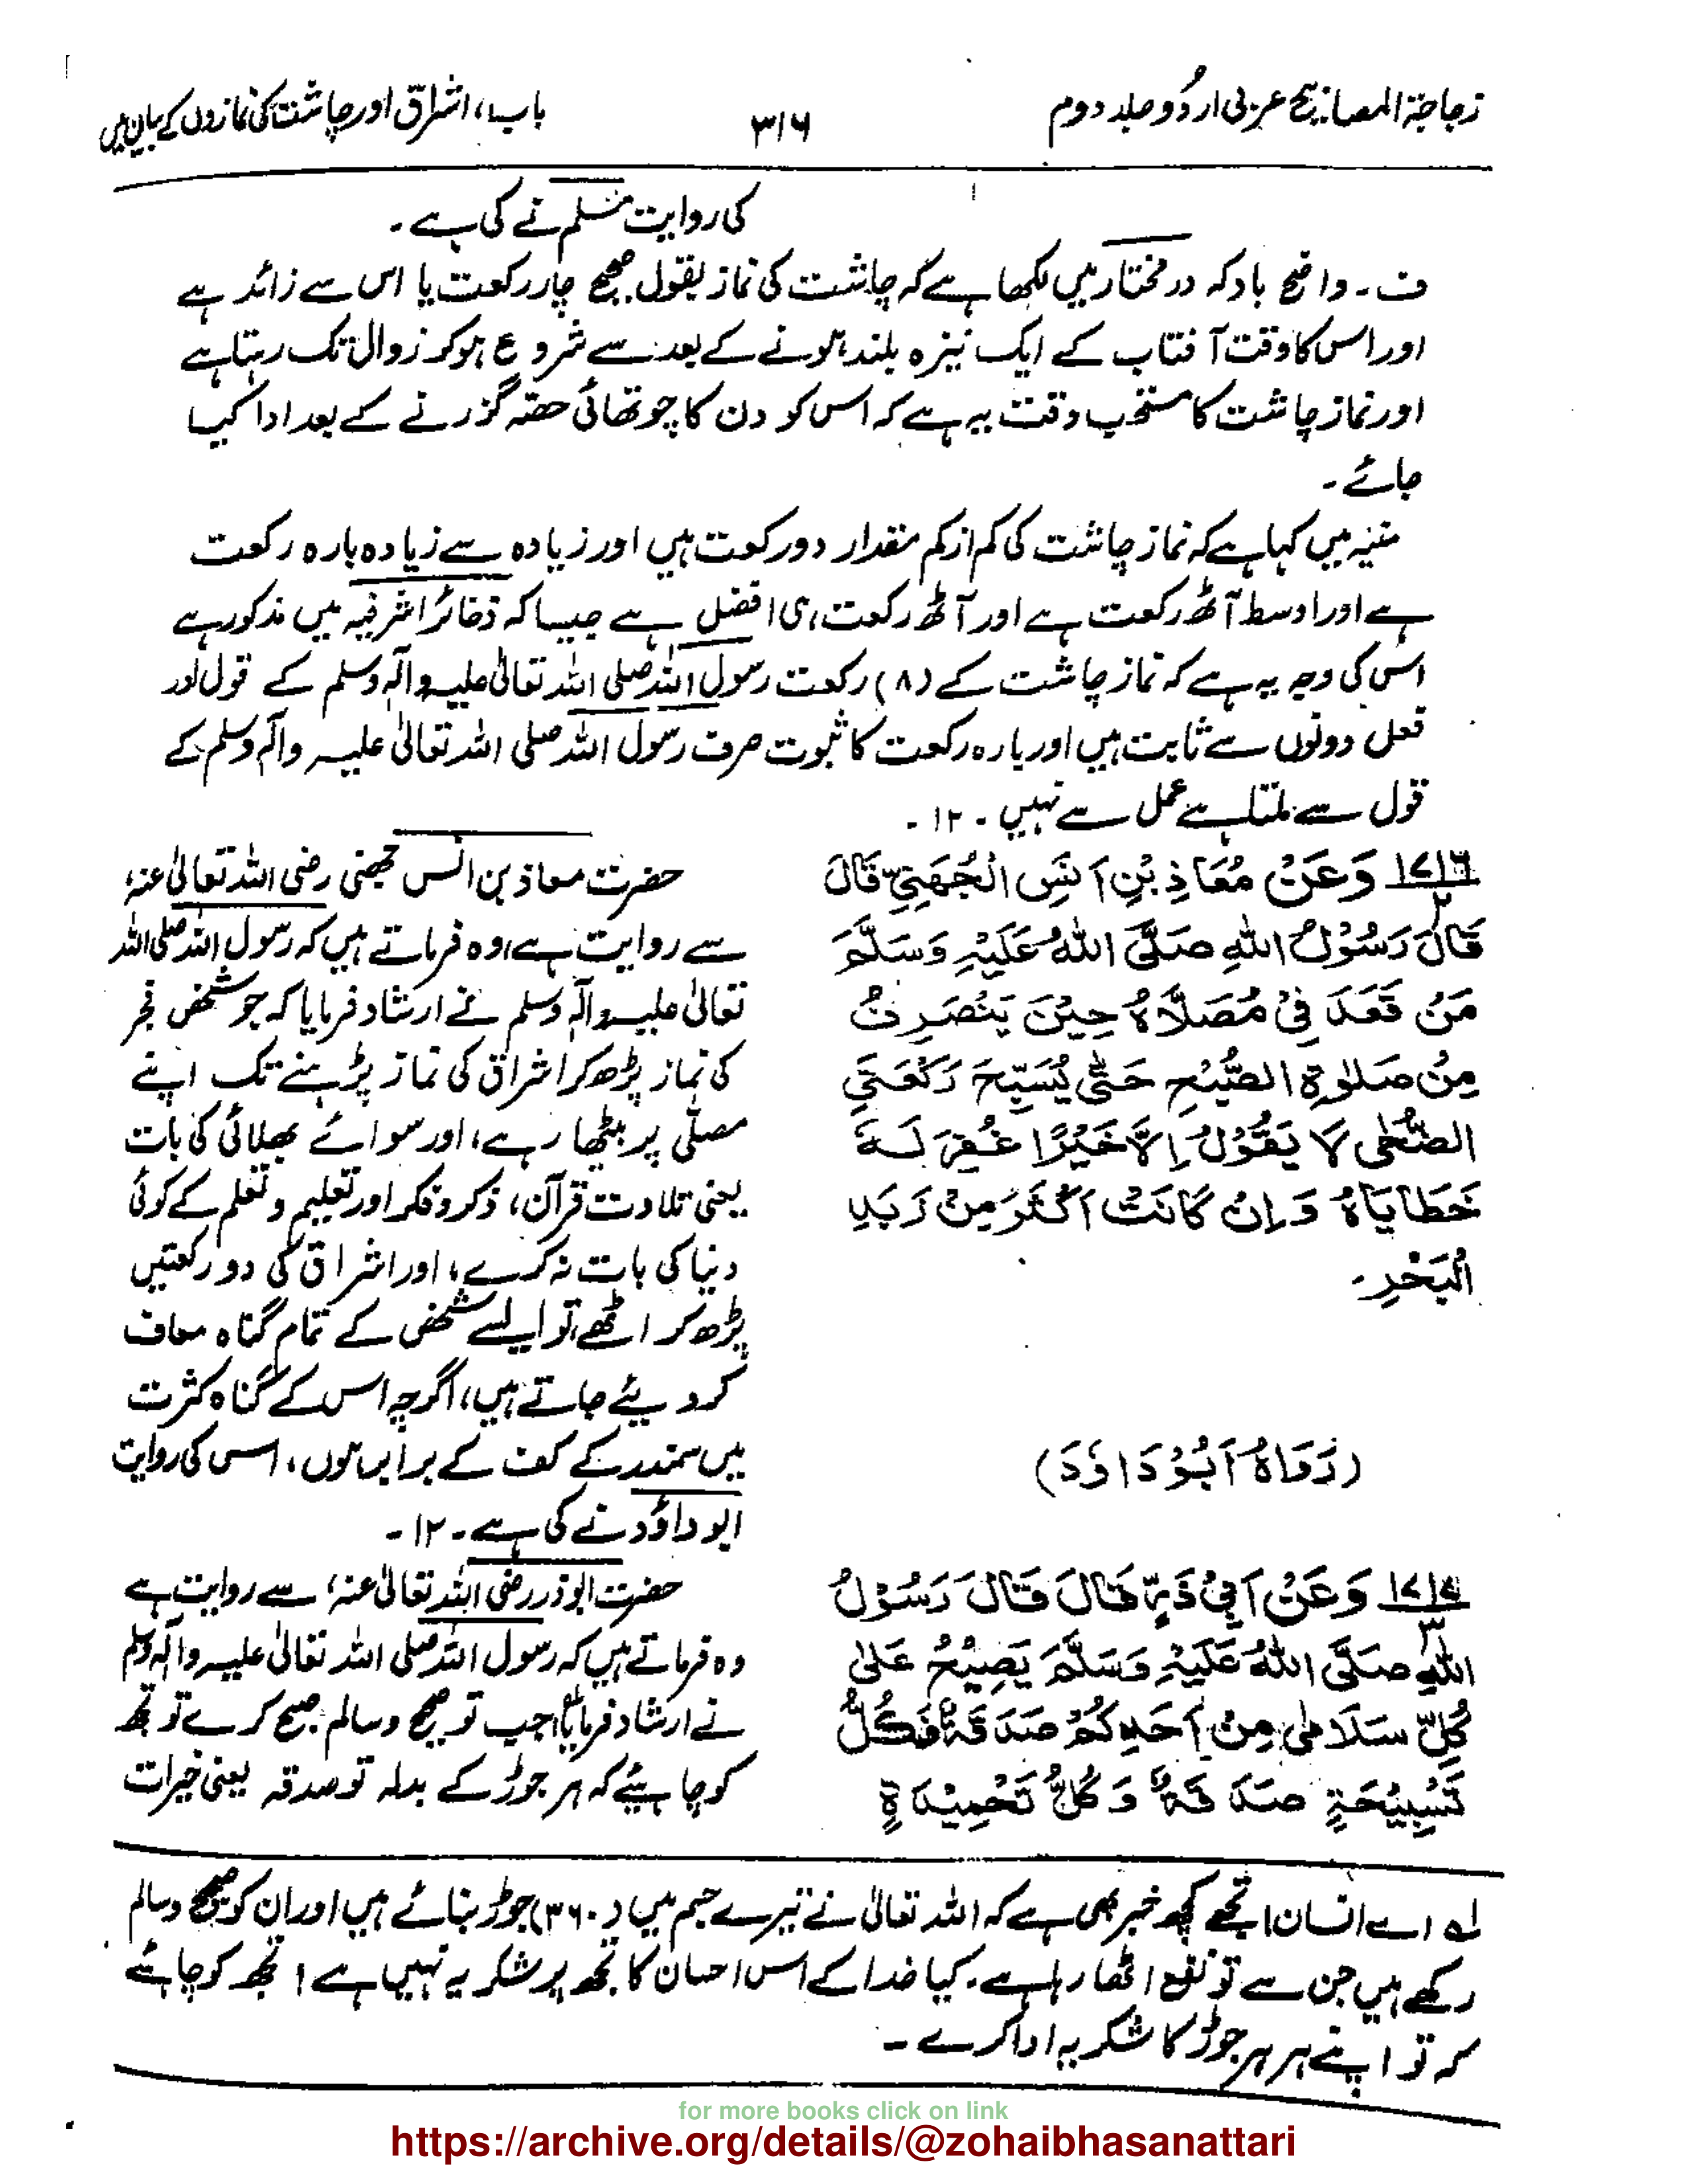 زجاجۃ المصابیح عربی اردُو جلد دوم
۳۱۶
باب، اشراق اور چاشت کی نمازوں کے بیان میں
کی روایت مسلم نے کی ہے۔
ف۔ واضح بادکہ درمختار میں لکھا ہے کہ چاشت کی نماز بقول صحیح چار رکعت یا اس سے زائد ہے
اور اس کا وقت آفتاب کے ایک نیزہ بلند ہونے کے بعد سے شروع ہوکر زوال تک رہتا ہے
اور نماز چاشت کا مستحب وقت یہ ہے کہ اس کو دن کا چوتھائی حصّہ گزرنے کے بعد ادا کیا
جائے۔
منیہ میں کہا ہے کہ نماز چاشت کی کم از کم مقدار دو رکعت ہیں اور زیادہ سے زیادہ بارہ رکعت
ہے اور اوسط آٹھ رکعت ہے اور آٹھ رکعت ہی افضل ہے جیسا کہ ذخائر اشرفیہ میں مذکور ہے
اس کی وجہ یہ ہے کہ نماز چاشت کے (۸) رکعت رسول اللہ صلی اللہ تعالیٰ علیہ وآلہٖ وسلم کے قول اور
فعل دونوں سے ثابت ہیں اور بارہ رکعت کا ثبوت صرف رسول اللہ صلی اللہ تعالیٰ علیہ وآلہٖ وسلم کے
قول سے ملتا ہے عمل سے نہیں۔ ۱۲۔
۱۷۱۶ وَعَنْ مُعَاذِ بْنِ اَنَسِ الْجُهَنِيِّ قَالَ
۲
قَالَ رَسُوْلُ اللهِ صَلَّى اللهُ عَلَيْهِ وَسَلَّمَ
مَنْ قَعَدَ فِيْ مُصَلَّاهُ حِيْنَ يَنْصَرِفُ
مِنْ صَلٰوةِ الصُّبْحِ حَتّٰى يُسَبِّحَ رَكْعَتَيِ
الضُّحٰى لَا يَقُوْلُ اِلَّا خَيْرًا غُفِرَ لَهٗ
خَطَايَاهُ وَاِنْ كَانَتْ اَكْثَرَ مِنْ زَبَدِ
الْبَحْرِ۔
(رَوَاهُ اَبُوْ دَاوٗدَ)
حضرت معاذ بن انس جھنی رضی اللہ تعالیٰ عنہ،
سے روایت ہے، وہ فرماتے ہیں کہ رسول اللہ صلی اللہ
تعالیٰ علیہ وآلہٖ وسلم نے ارشاد فرمایا کہ جو شخص فجر
کی نماز پڑھ کر اشراق کی نماز پڑہنے تک اپنے
مصلّی پر بیٹھا رہے، اور سوائے بھلائی کی بات
یعنی تلاوت قرآن، ذکر و فکر اور تعلیم و تعلم کے کوئی
دنیا کی بات نہ کرے، اور اشراق کی دو رکعتیں
پڑھ کر اٹھے تو ایسے شخص کے تمام گناہ معاف
کر دیئے جاتے ہیں، اگرچہ اس کے گناہ کثرت
میں سمندر کے کف کے برابر ہوں، اس کی روایت
ابو داؤد نے کی ہے۔ ۱۲۔
۱۷۱۷ وَعَنْ اَبِيْ ذَرٍّ قَالَ قَالَ رَسُوْلُ
۳
اللهِ صَلَّى اللهُ عَلَيْهِ وَسَلَّمَ يَصْبِحُ عَلٰى
كُلِّ سَلَامٰى مِنْ اَحَدِكُمْ صَدَقَةٌ فَكُلُّ
تَسْبِيْحَةٍ صَدَقَةٌ وَكُلُّ تَحْمِيْدَةٍ
حضرت ابوذر رضی اللہ تعالیٰ عنہ، سے روایت ہے
وہ فرماتے ہیں کہ رسول اللہ صلی اللہ تعالیٰ علیہ وآلہٖ وسلم
نے ارشاد فرمایا جب تو صحیح و سالم صبح کرے تو تجھ
کو چاہیئے کہ ہر جوڑ کے بدلہ تو صدقہ یعنی خیرات
لہ اے انسان! تجھے کچھ خبر بھی ہے کہ اللہ تعالیٰ نے تیرے جسم میں (۳۶۰) جوڑ بنائے ہیں اور ان کو صحیح و سالم
رکھے ہیں جن سے تو نفع اٹھا رہا ہے۔ کیا خدا کے اس احسان کا تجھ پر شکریہ نہیں ہے! تجھ کو چاہئے
کہ تو اپنے ہر ہر جوڑ کا شکریہ ادا کرے۔
for more books click on link
https://archive.org/details/@zohaibhasanattari